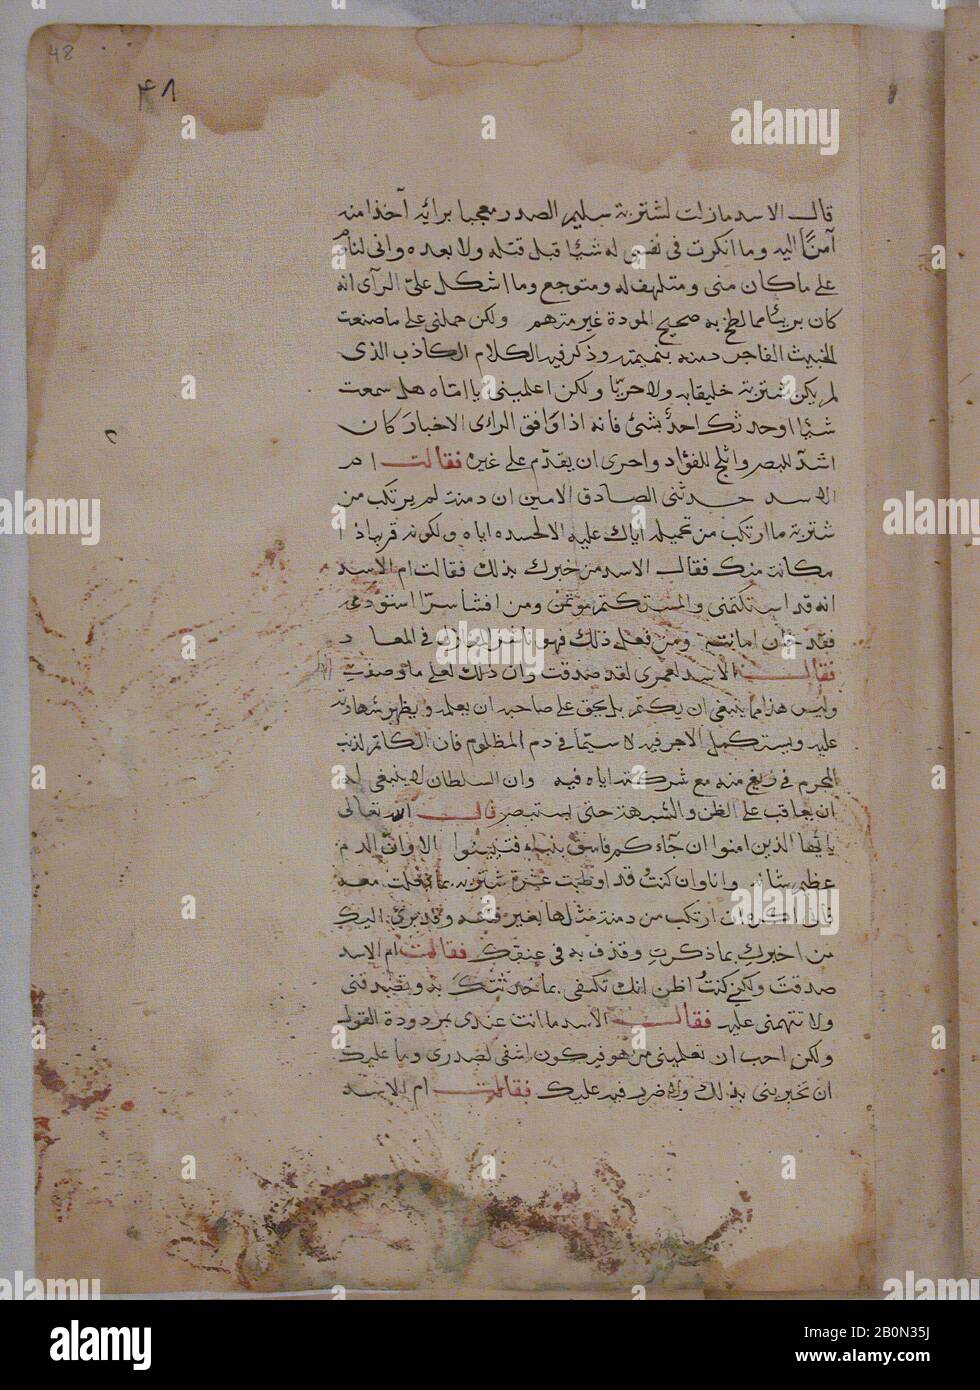 48
٤٨
قال الاسد مازلت لشتربة سليم الصدر معجبا برائه آخذا منه
آمنًا اليه وما انكرت فى نفسى له شيأ قبل قتله ولا بعده وانى لنادم
على ما كان منى ومتلهف له ومتوجع وما اشكل علىّ الرآى انه
كان بريئا مما لطخ به صحيح المودة غير متهم ولكن حملنى على ما صنعت
الخبيث الفاجر دمنه بنميمته وذكر فيه الكلام الكاذب الذى
لم يكن شتربة خليقا به ولا حريّا ولكن اعلمينى يا امتاه هل سمعت
شيأ او حدثك احدٌ بشئ فانه اذا وافق الراى الاخبار كان
اشدّ للبصر واثلج للفؤاد واحرى ان يقدّم على غيره فقالت ام
الاسد حدثنى الصادق الامين ان دمنت لم يرتكب من
شتربة ما ارتكب من تحميله اياك عليه الا لحسده اياه ولكونه قريبا ذا
مكانت منك فقال الاسد من خبرك بذلك فقالت ام الاسد
انه قد استكتمنى والمستكتم موتمن ومن افشا سرّا استودعه
فقد خان امانته ومن فعل ذلك فهو فى المعاد
فقال الاسد لعمرى لقد صدقت وان ذلك لعلى ما وصفت
وليس هذا مما ينبغى ان يكتم بل يحق على صاحبه ان يعلمه ويظهر شهادته
عليه ويستكمل الاجر فيه لا سيما فى دم المظلوم فان الكاتم لذنب
المجرم فى منه مع شركته اياه فيه وان السلطان لا ينبغى له
ان يعاقب على الظن والشبهة حتى يستبصر قال الله تعالى
يا ايّها الذين امنوا ان جآء كم فاسق بنبإ فتبينوا الا وانّ الدم
عظيم شانه وانا وان كنتُ قد اوطيت شتربه بما فعلت معه
فانى اكره ان ارتكب من دمنة مثلها بغير وقد برئ اليك
من اخبرك بما ذكرتِ وقذف به فى عنقك فقالت ام الاسد
صدقتَ ولكن كنتُ اظن انك تكتفى بما حدثتك به وتصدقنى
ولا تتهمنى عليه فقال الاسد ما انت عندى بمردودة القول
ولكن احب ان تعلمينى من هو فيكون اشفى لصدرى وما عليك
ان تخبرينى بذلك ولا ضرر فيه عليك فقالت ام الاسد
alamy
a
Image ID: 2B0N35J
www.alamy.com